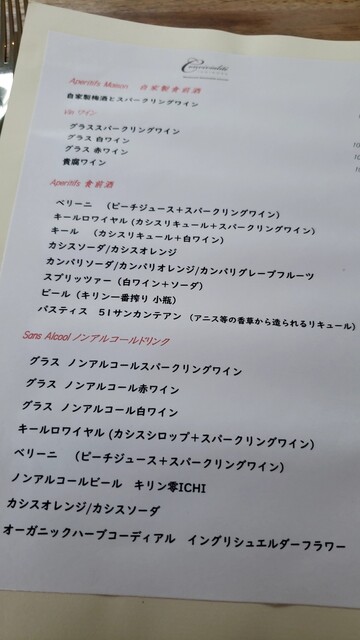 Aperitifs Maison 自家製食前酒
自家製梅酒とスパークリングワイン
Vin ワイン
グラススパークリングワイン
グラス 白ワイン
グラス 赤ワイン
貴腐ワイン
Aperitifs 食前酒
ベリーニ （ピーチジュース＋スパークリングワイン）
キールロワイヤル (カシスリキュール＋スパークリングワイン）
キール （カシスリキュール＋白ワイン）
カシスソーダ/カシスオレンジ
カンパリソーダ/カンパリオレンジ/カンパリグレープフルーツ
スプリッツァー（白ワイン＋ソーダ）
ビール（キリン一番搾り 小瓶）
パスティス 51サンカンテアン （アニス等の香草から造られるリキュール）
Sans Alcool ノンアルコールドリンク
グラス ノンアルコールスパークリングワイン
グラス ノンアルコール赤ワイン
グラス ノンアルコール白ワイン
キールロワイヤル (カシスシロップ＋スパークリングワイン）
ベリーニ （ピーチジュース＋スパークリングワイン）
ノンアルコールビール キリン零ICHI
カシスオレンジ/カシスソーダ
オーガニックハーブコーディアル イングリシュエルダーフラワー